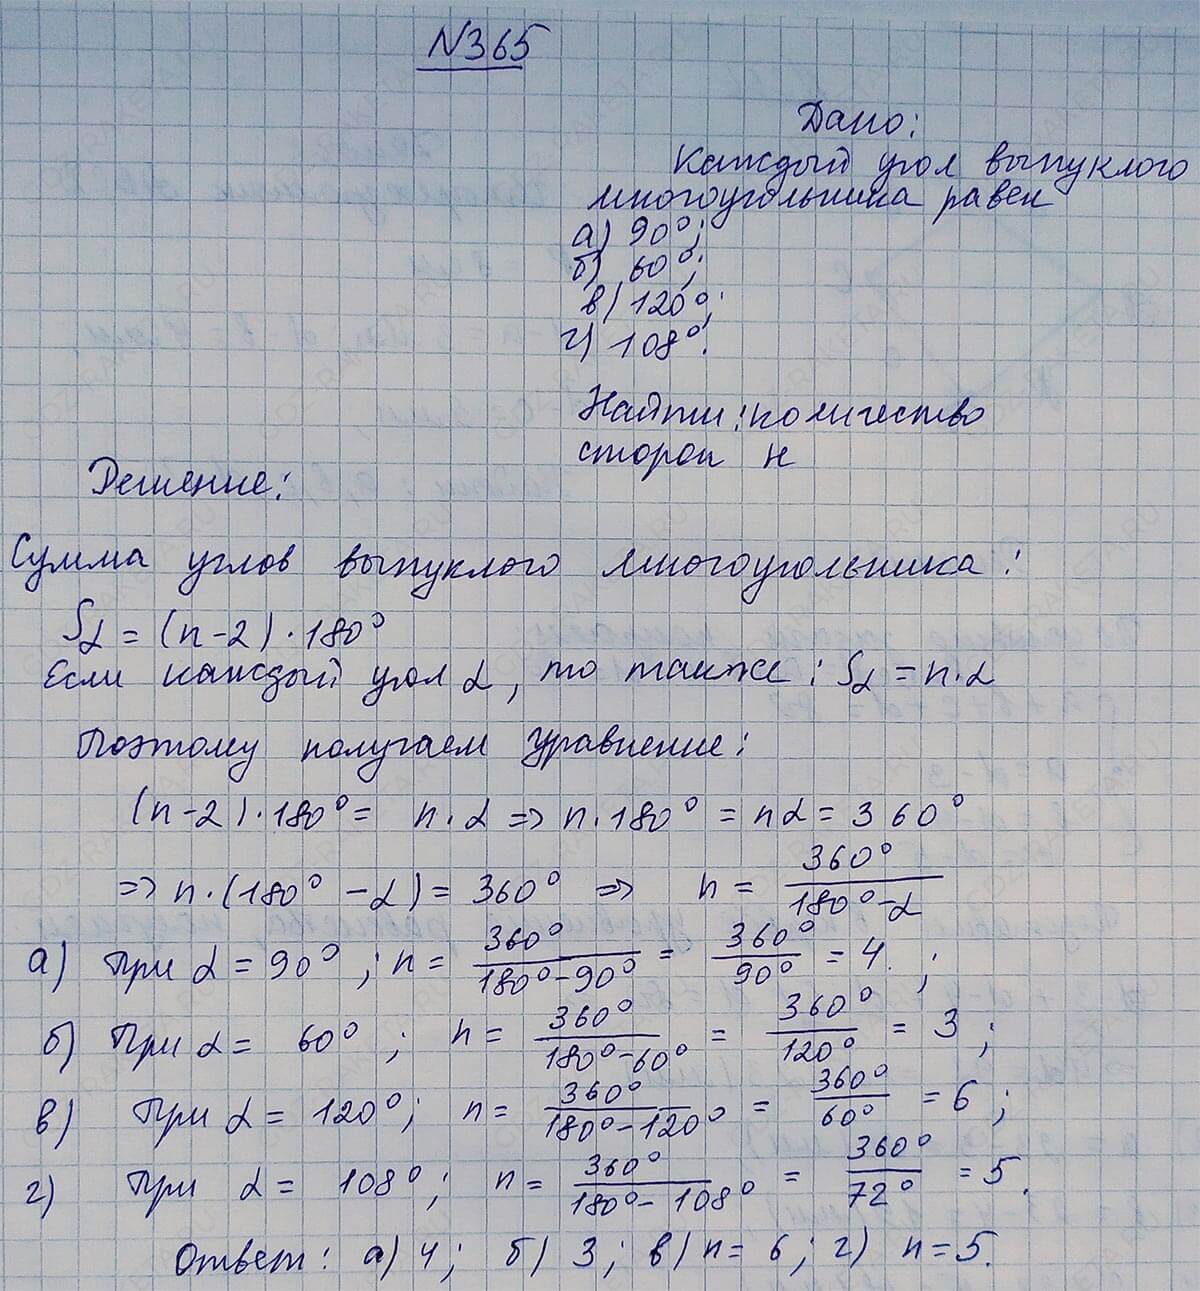 №365
Дано:
Каждый угол выпуклого
многоугольника равен
а) 90°;
б) 60°;
в) 120°;
г) 108°.
Найти: количество
сторон н
Решение:
Сумма углов выпуклого многоугольника:
Sα = (n-2)·180°
Если каждый угол α, то также: Sα = n·α
Поэтому получаем уравнение:
(n-2)·180° = n·α => n·180° = nα = 360°
=> n·(180° - α) = 360° => n = 360°/(180°-α)
а) При α = 90°; n = 360°/(180°-90°) = 360°/90° = 4.;
б) При α = 60°; n = 360°/(180°-60°) = 360°/120° = 3;
в) При α = 120°; n = 360°/(180°-120°) = 360°/60° = 6;
г) При α = 108°; n = 360°/(180°-108°) = 360°/72° = 5.
Ответ: а) 4; б) 3; в) n = 6; г) n = 5.